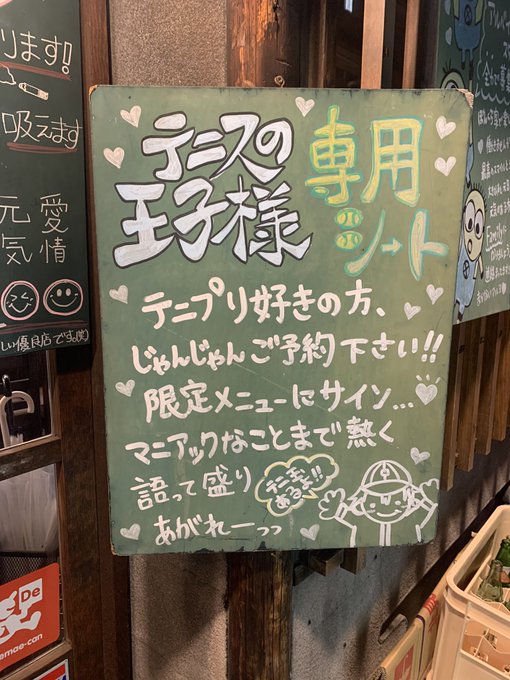 ります!
吸えます
元気
愛情
しい優良店です。(笑)
テニスの
王子様
専用
シート
テニプリ好きの方、
じゃんじゃんご予約下さい!!
限定メニューにサイン...
マニアックなことまで熱く
語って盛り
あがれーっっ
テニ王
あるよ!!
Family
De
emae-can